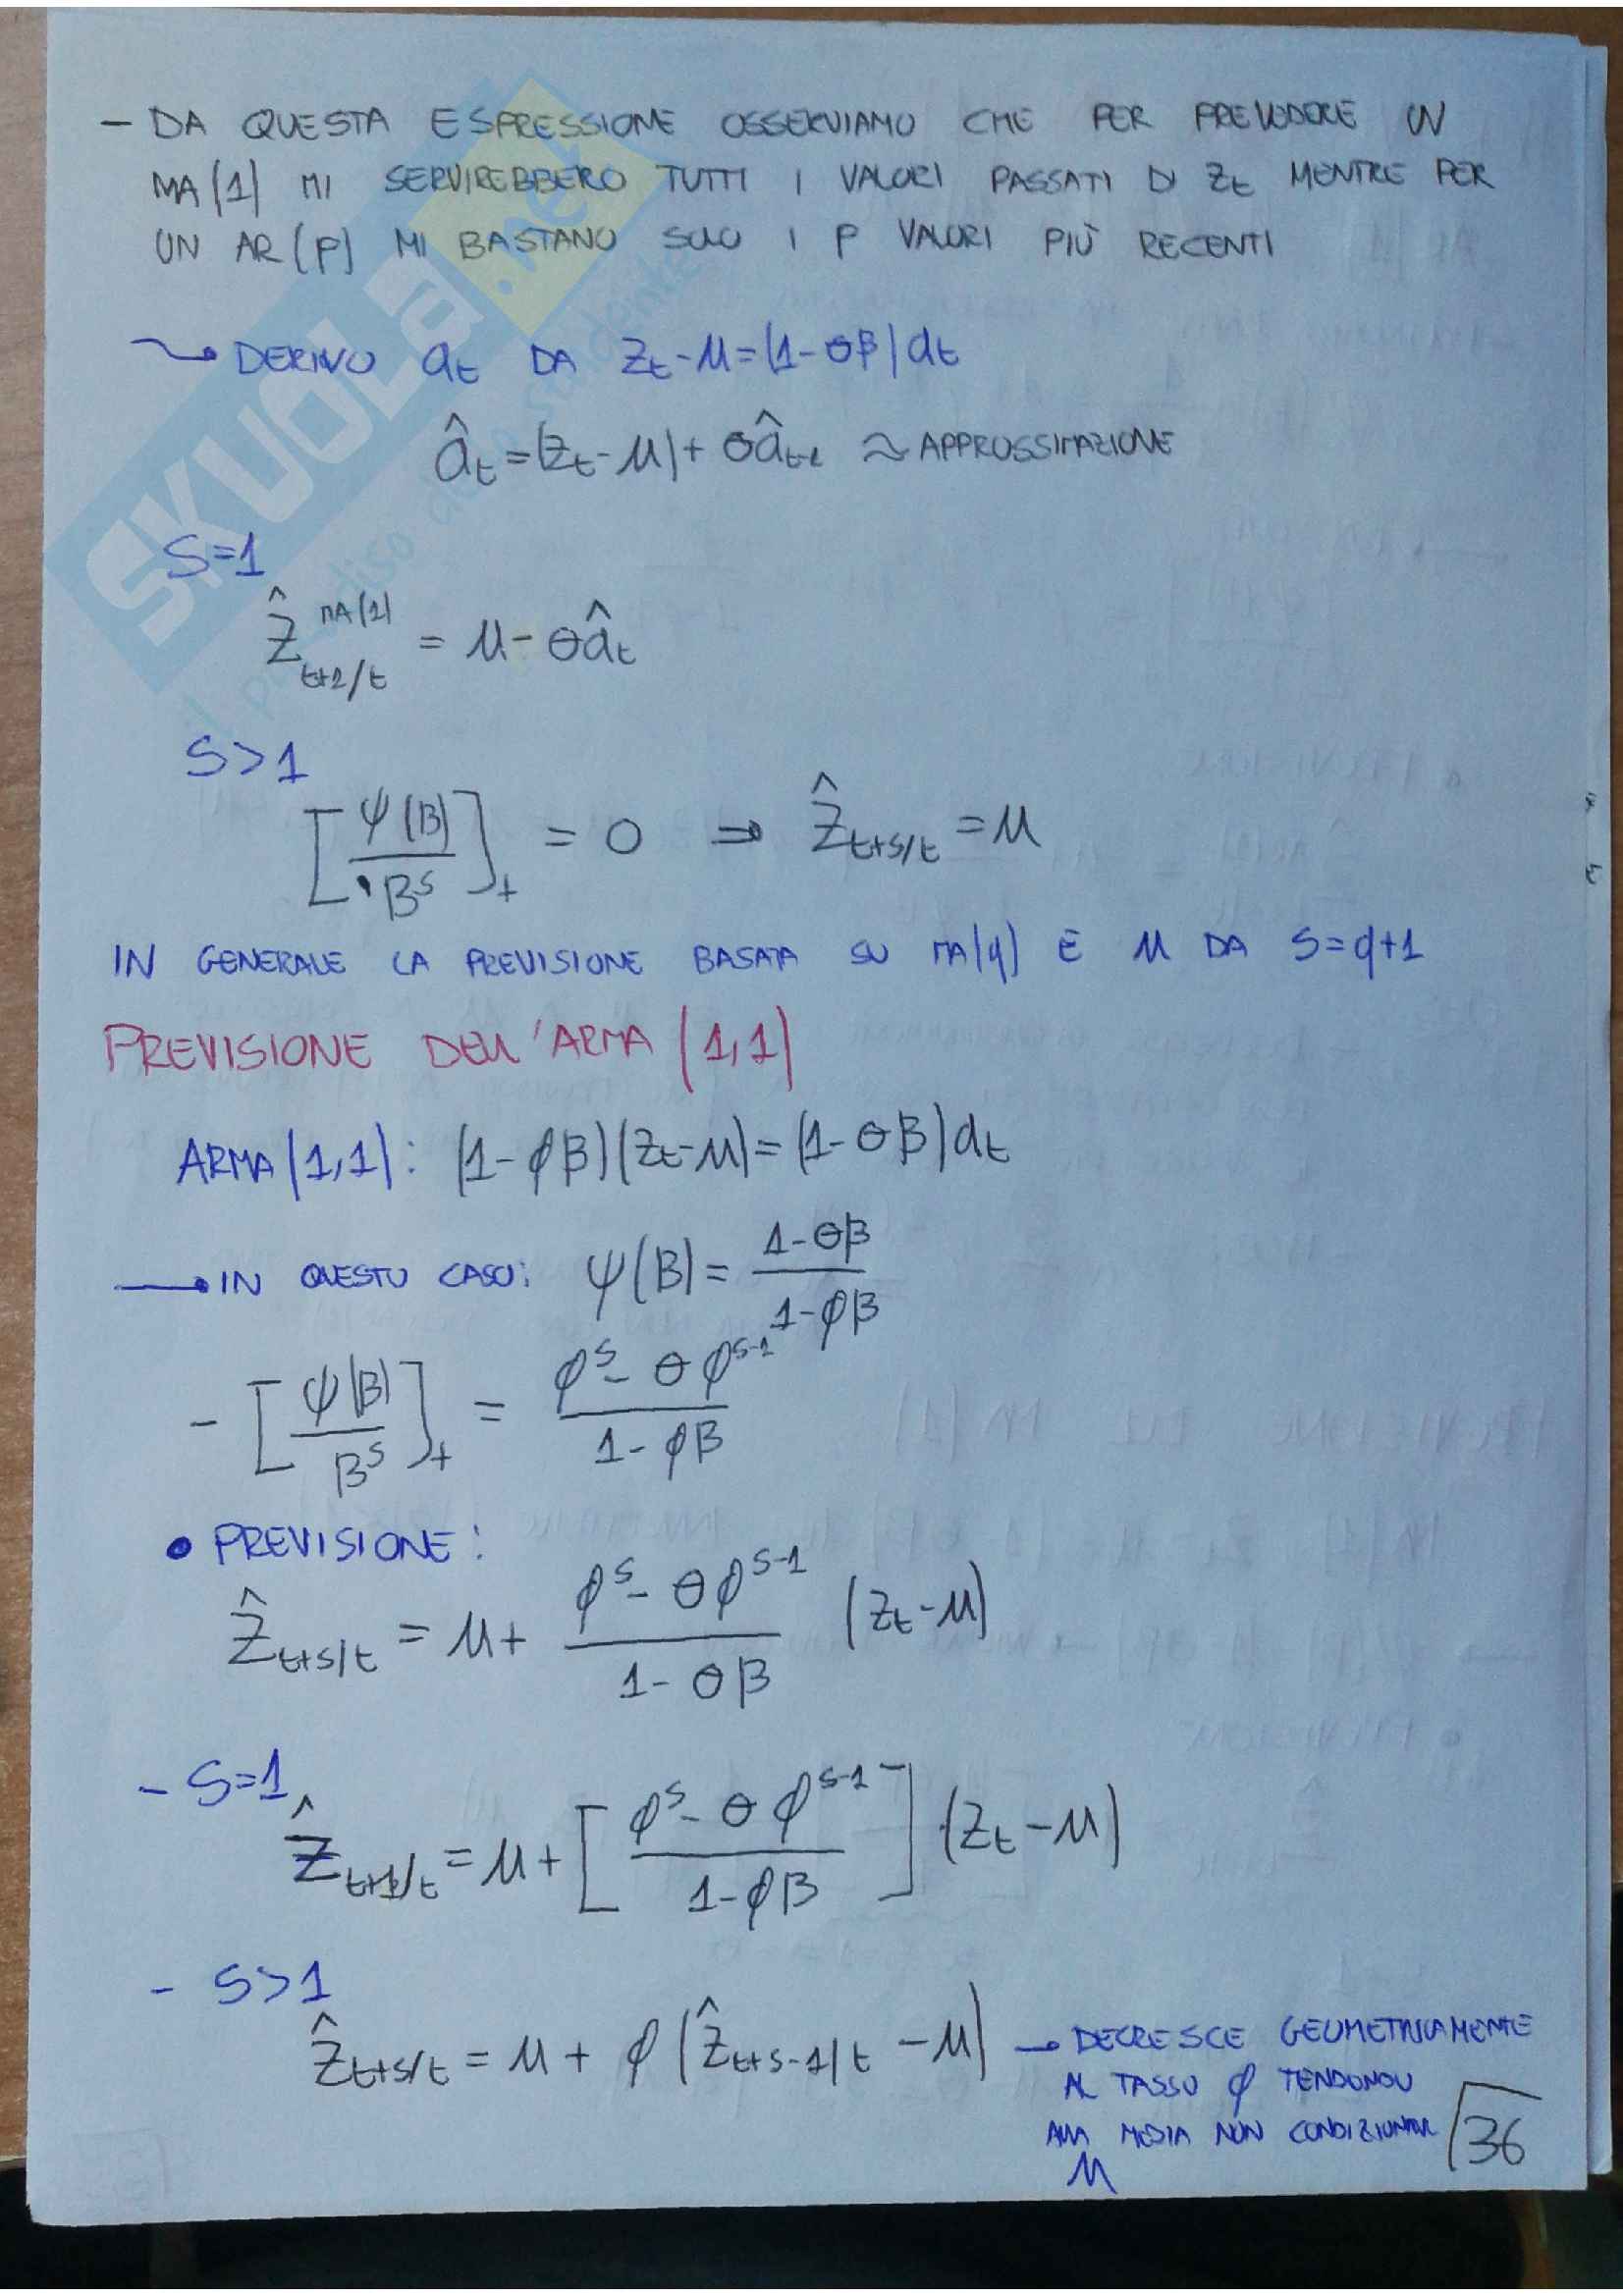 - DA QUESTA ESPRESSIONE OSSERVIAMO CHE PER PREVEDERE UN
MA(1) MI SERVIREBBERO TUTTI I VALORI PASSATI DI Zt MENTRE PER
UN AR(P) MI BASTANO SOLO I P VALORI PIÙ RECENTI
DERIVO at DA Zt-μ=(1-θB)at
ât=(Zt-μ)+θât-1 ≈ APPROSSIMAZIONE
S=1
Ẑ MA(1) t+1/t = μ-θât
S>1
[ψ(B)/B^S]+ = 0 ⇒ Ẑt+s/t = μ
IN GENERALE LA PREVISIONE BASATA SU MA(q) È μ DA S=q+1
PREVISIONE DELL'ARMA (1,1)
ARMA(1,1): (1-φB)(Zt-μ)=(1-θB)at
→ IN QUESTO CASO: ψ(B)= (1-θB)/(1-φB)
- [ψ(B)/B^S]+ = (φ^S - θφ^S-1)/(1-φB)
• PREVISIONE:
Ẑt+s/t = μ + (φ^S - θφ^S-1)/(1-θB) (Zt-μ)
- S=1
Ẑt+1/t = μ + [(φ^S - θφ^S-1)/(1-φB)] (Zt-μ)
- S>1
Ẑt+s/t = μ + φ(Ẑt+s-1/t - μ) → DECRESCE GEOMETRICAMENTE
AL TASSO φ TENDONOU
ALLA MEDIA NON CONDIZIONATA
μ
36
SKUOLA.net